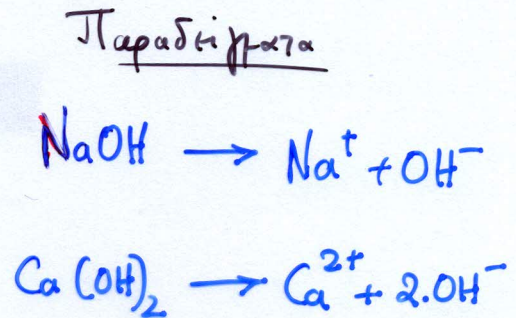 Παραδείγματα
NaOH → Na⁺ + OH⁻
Ca(OH)₂ → Ca²⁺ + 2.OH⁻